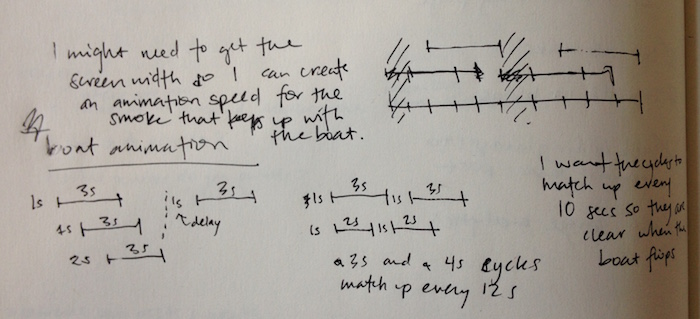 I might need to get the
screen width so I can create
an animation speed for the
smoke that keeps up with
the boat.
boat animation
1s 3s 1s 3s
delay
1s 3s
2s 3s
1s 3s 1s 3s
1s 2s 1s 2s
a 3s and a 4s cycles
match up every 12s
I want the cycles to
match up every
10 secs so they are
clear when the
boat flips